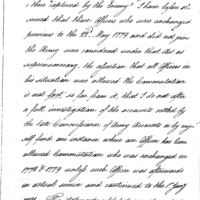 then captured by the Enemy" I have before ob-
served that those Officers who were exchanged
previous to the 22d. May 1779 and did not join
the Army were considered under that Act as
supernumerary. the assertion that all Officers in
his situation were allowed the Commutation
is not fact as far as I can learn, that I do not after
a full investigation of the accounts settled by
the late Commissioner of Army Accounts or by my
self find one instance where an Officer has been
allowed Commutation who was exchanged in
1778 & 1779 unless such Officer was afterwards
in actual service and continued to the
was